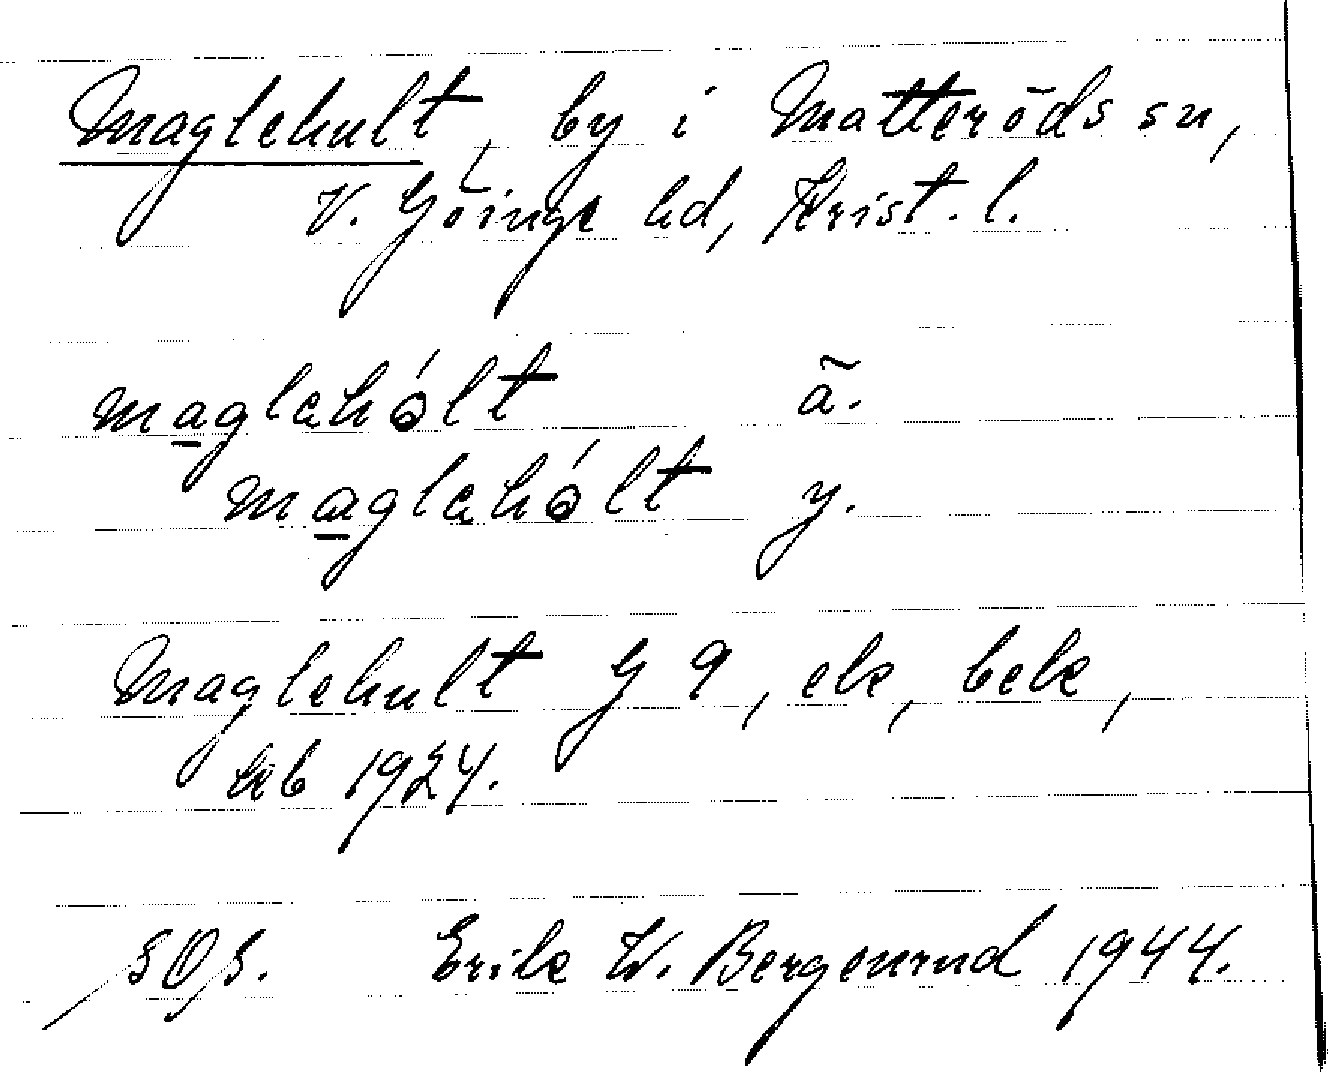 Maglehult, by i Matteröds sn,
V. Göinge hd, Krist. l.
maglehólt ä.
maglehólt y.
Maglehult G 9, ek, bek,
kb 1924.
SOS. Erik W. Bergenrud 1944.